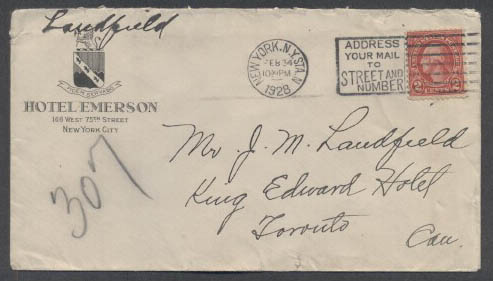 Landfield
FIDEM SERVABO
HOTEL EMERSON
166 WEST 75TH STREET
NEW YORK CITY
NEW YORK, N.Y. STA. N
FEB 3
10 PM
1928
ADDRESS
YOUR MAIL
TO
STREET AND
NUMBER
2 2
307
Mr. J. M. Landfield
King Edward Hotel
Toronto
Can.